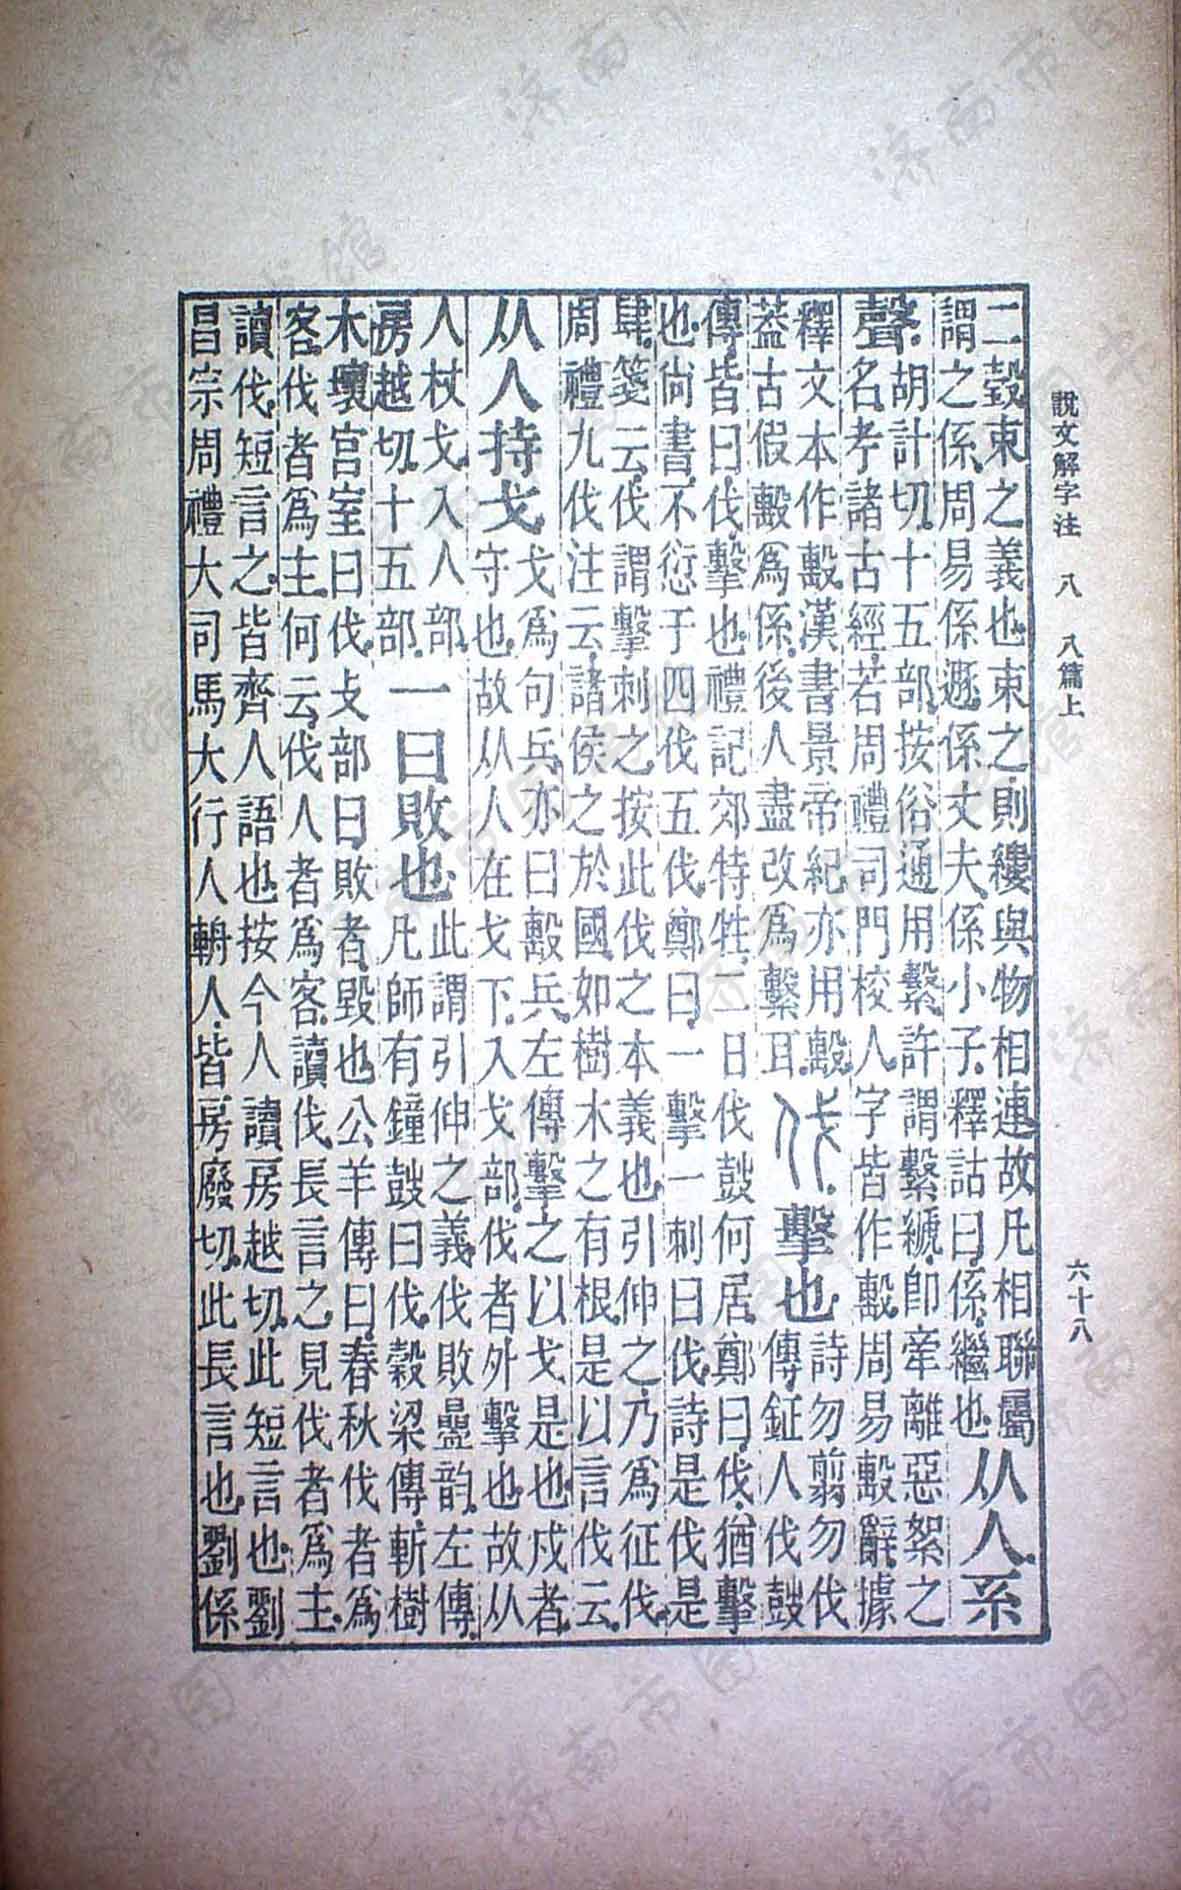 說文解字注 八 八篇上 六十八
二㲉束之義也束之則縷與物相連故凡相聯屬
謂之係周易係遯係丈夫係小子釋詁曰係繼也
从人系
聲
胡計切十五部按俗通用繫許謂繫𦃇卽牽離惡絮之
名孝諸古經若周禮司門校人字皆作毄周易毄辭據
釋文本作毄漢書景帝紀亦用毄
葢古假毄爲係後人盡改爲繫耳
伐 擊也
詩勿翦勿伐
傳鉦人伐鼓
傳皆曰伐擊也禮記郊特牲二日伐鼓何居鄭曰伐猶擊
也尙書不愆于四伐五伐鄭曰一擊一刺曰伐詩是伐是
肆箋云伐謂擊刺之按此伐之本義也引伸之乃爲征伐
周禮九伐注云諸侯之於國如樹木之有根是以言伐云
从人持戈
戈爲句兵亦曰毄兵左傳擊之以戈是也戍者
守也故从人在戈下入戈部伐者外擊也故从
人杖戈入人部
房越切十五部
一曰敗也
此謂引伸之義伐敗㬪韵左傳
凡師有鐘鼓曰伐穀梁傳斬樹
木壞宮室曰伐攴部曰敗者毀也公羊傳曰春秋伐者爲
客伐者爲主何云伐人者爲客讀伐長言之見伐者爲主
讀伐短言之皆齊人語也按今人讀房越切此短言也劉
昌宗周禮大司馬大行人輈人皆房廢切此長言也劉係